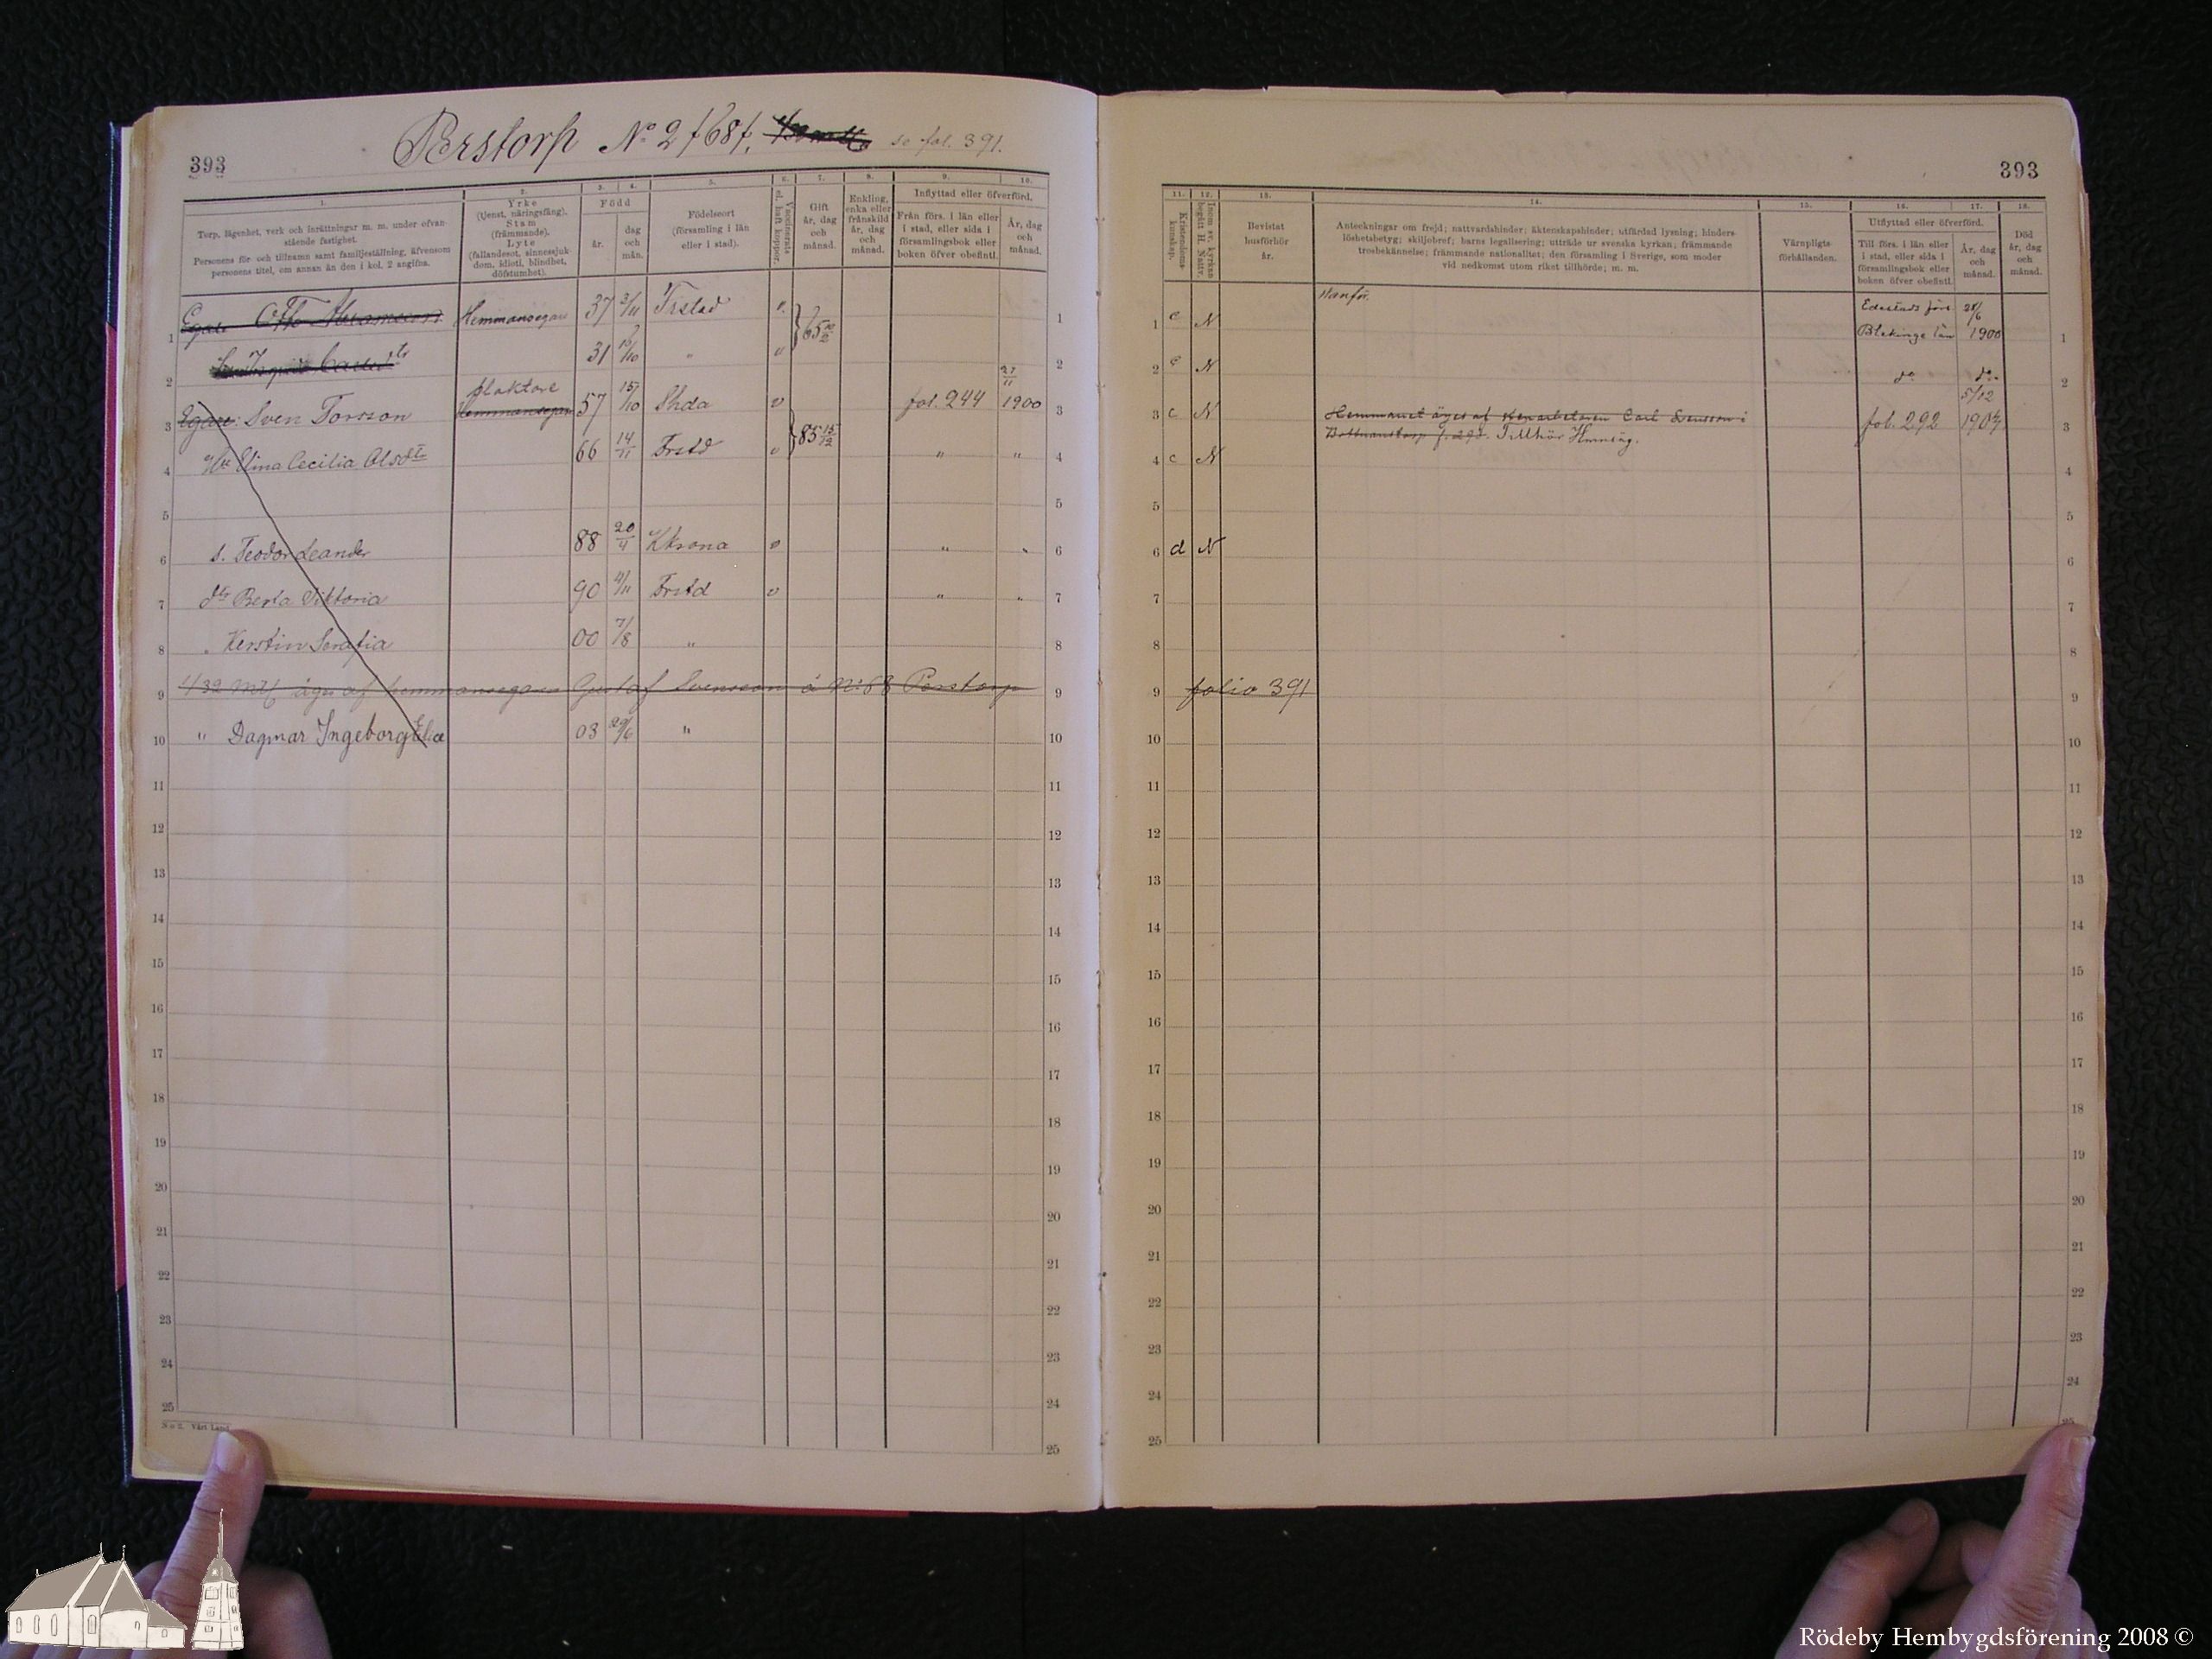 393
Perstorp No 2 f 68 f. se fol. 391.
1. 2. 3. 4. 5. 6. 7. 8. 9. 10.
Torp, lägenhet, verk och inrättningar m. m. under ofvan-
stående fastighet.
Personens för- och tillnamn samt familjeställning, äfvensom
personens titel, om annan än den i kol. 2 angifna.
Yrke
(tjenst, näringsfång).
Stam
(främmande).
Lyte
(fallandesot, sinnessjuk-
dom, idioti, blindhet,
döfstumhet).
Född
år.
dag
och
mån.
Födelseort
(församling i län
eller i stad).
Vaccinerats
el. haft koppor.
Gift
år, dag
och
månad.
Enkling,
enka eller
frånskild
år, dag
och
månad.
Inflyttad eller öfverförd.
Från förs. i län eller
i stad, eller sida i
församlingsbok eller
boken öfver obefintl.
År, dag
och
månad.
1 Egare Otto Abramsson Hemmansegare 37 3/11 Frstad v. 65 1
2 31 " v 2
3 Egare: Sven Torsson Slaktare Hemmansegare 57 15/10 Shda v 85 15/12 fol. 244 27/11 1900 3
4 Elina Cecilia Olsdtr 66 14/11 Frstd v " " 4
5 5
6 s. Teodor Leander 88 20/4 Kkrona v " " 6
7 dtr Berta Viktoria 90 4/11 Frstd v " " 7
8 " Kerstin Serafia 00 7/8 " 8
9 1/32 mtl äges af hemmansegaren Gustaf Svensson å No 68 Perstorp 9
10 " Dagmar Ingeborg Elia 03 29/6 " 10
11 11
12 12
13 13
14 14
15 15
16 16
17 17
18 18
19 19
20 20
21 21
22 22
23 23
24 24
25 25
No 2. Vårt Land
393
11. 12. 13. 14. 15. 16. 17. 18.
Kristendoms-
kunskap.
Inom sv. kyrkan
begått H. Nattv.
Bevistat
husförhör
år.
Anteckningar om frejd; nattvardshinder; äktenskapshinder; utfärdad lysning; hinders-
löshetsbetyg; skiljobref; barns legalisering; utträde ur svenska kyrkan; främmande
trosbekännelse; främmande nationalitet; den församling i Sverige, som moder
vid nedkomst utom riket tillhörde; m. m.
Värnpligts-
förhållanden.
Utflyttad eller öfverförd.
Till förs. i län eller
i stad, eller sida i
församlingsbok eller
boken öfver obefintl.
År, dag
och
månad.
Död
år, dag
och
månad.
1 c N Edestads förs 28/6
Blekinge län 1900 1
2 c N do do 2
3 c N Hemmanet äges af Carl Svensson i fol. 292 5/12 1904 3
Tillhör
4 c N 4
5 5
6 d N 6
7 7
8 8
9 folio 391 9
10 10
11 11
12 12
13 13
14 14
15 15
16 16
17 17
18 18
19 19
20 20
21 21
22 22
23 23
24 24
25 25
Rödeby Hembygdsförening 2008 ©